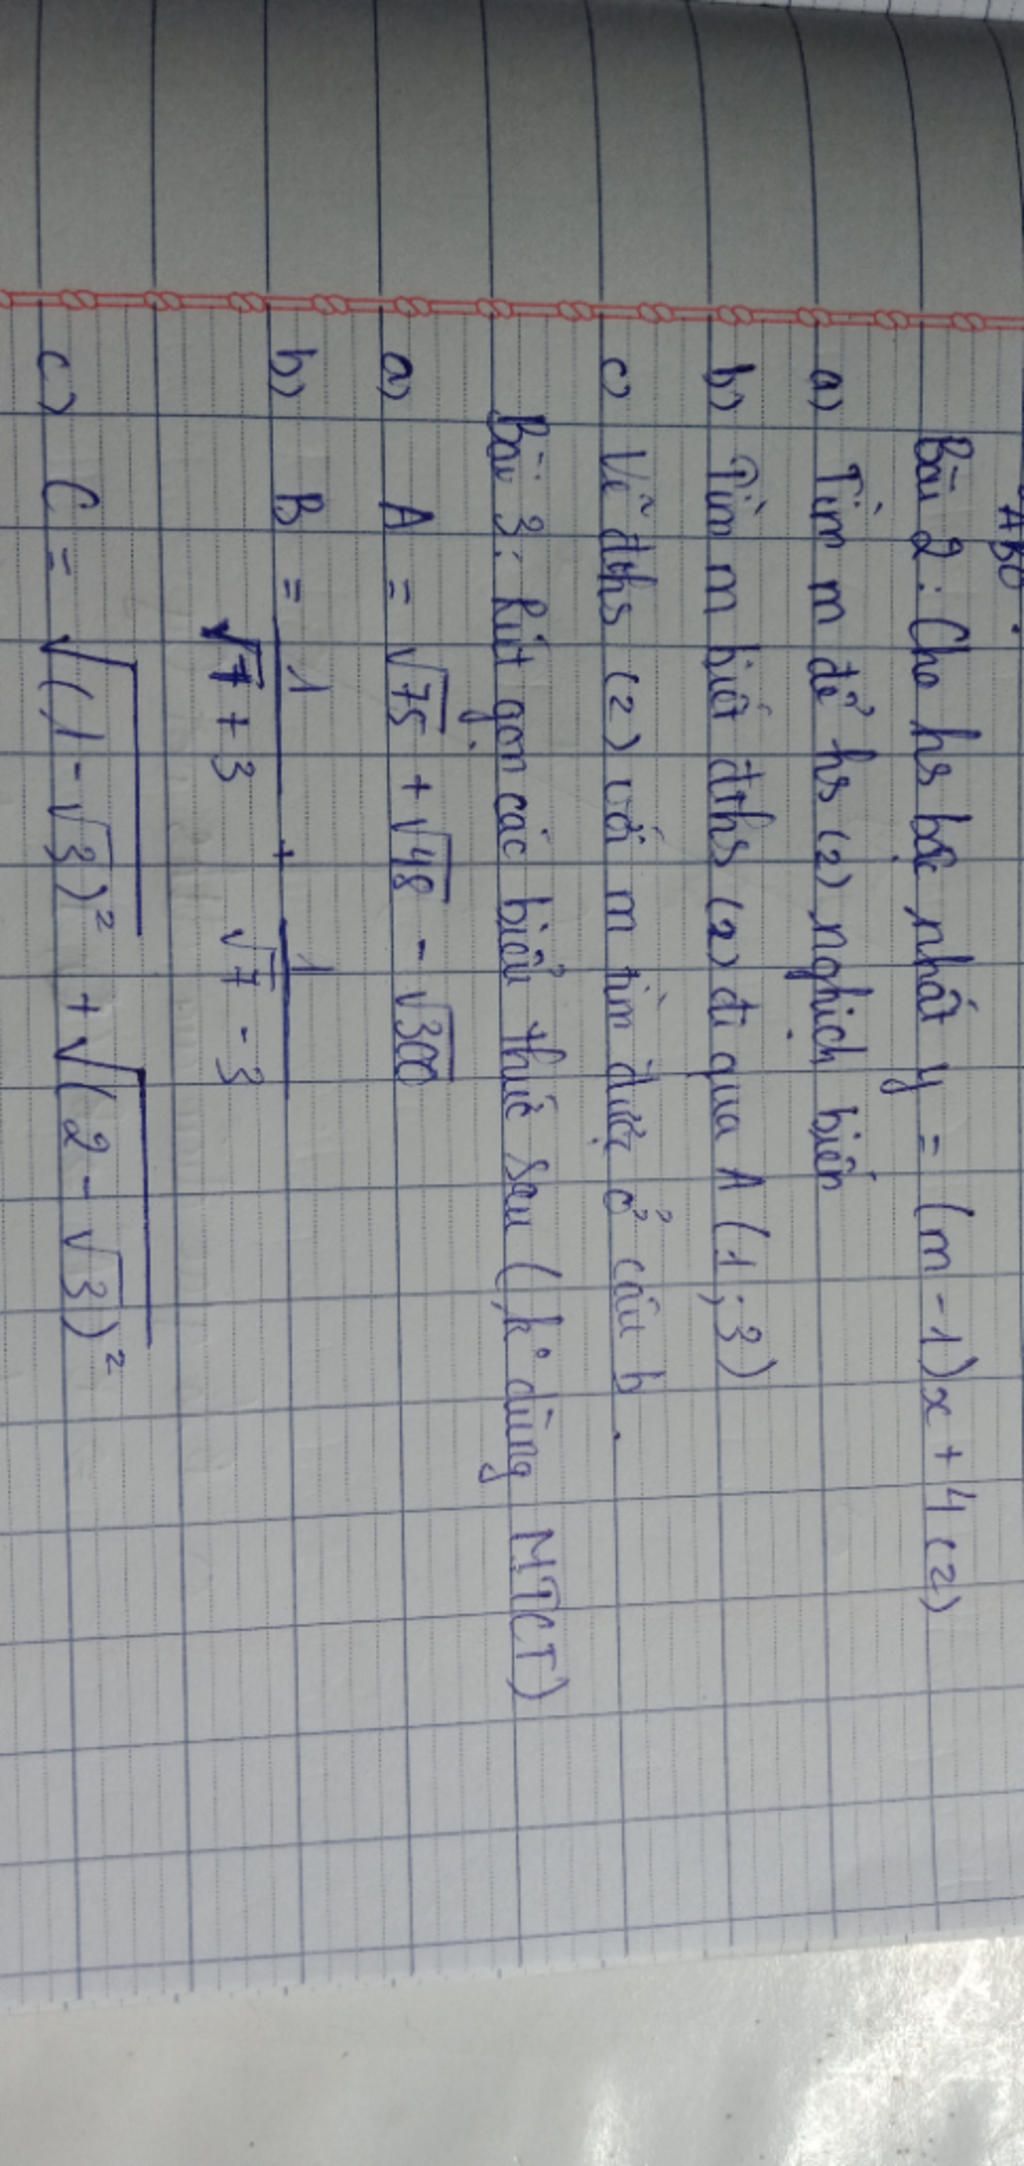 ABO.
Bài 2: Cho hs bậc nhất y = (m - 1)x + 4 (2)
a) Tìm m để hs (2) nghịch biến
b) Tìm m biết đths (2) đi qua A (1; 3)
c) Vẽ đths (2) với m tìm được ở câu b.
Bài 3: Rút gọn các biểu thức sau (k° dùng MTCT)
a) A = √75 + √48 - √300
b) B = 1/(√7 + 3) + 1/(√7 - 3)
c) C = √(1 - √3)² + √(2 - √3)²